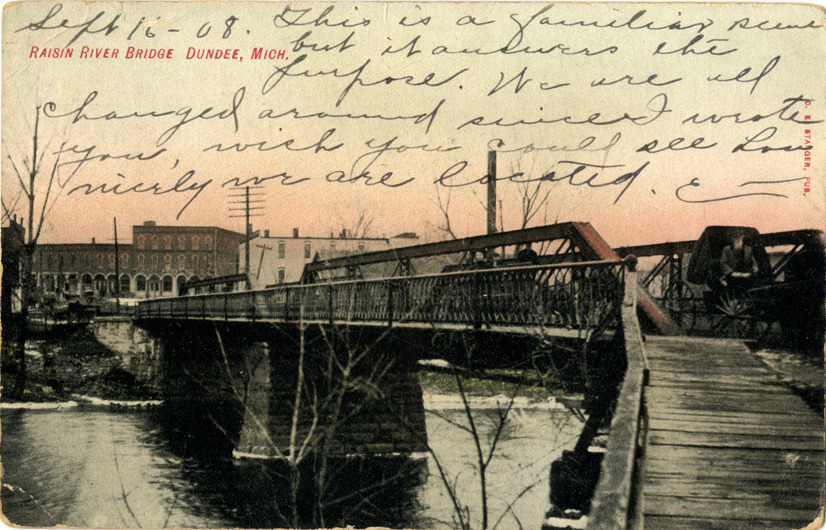 Sept 16-08. This is a familiar scene
RAISIN RIVER BRIDGE DUNDEE, MICH.
but it answers the
purpose. We are all
changed around since I wrote
you, wish you could see how
nicely we are located. E
C. E. STANGER, PUB.